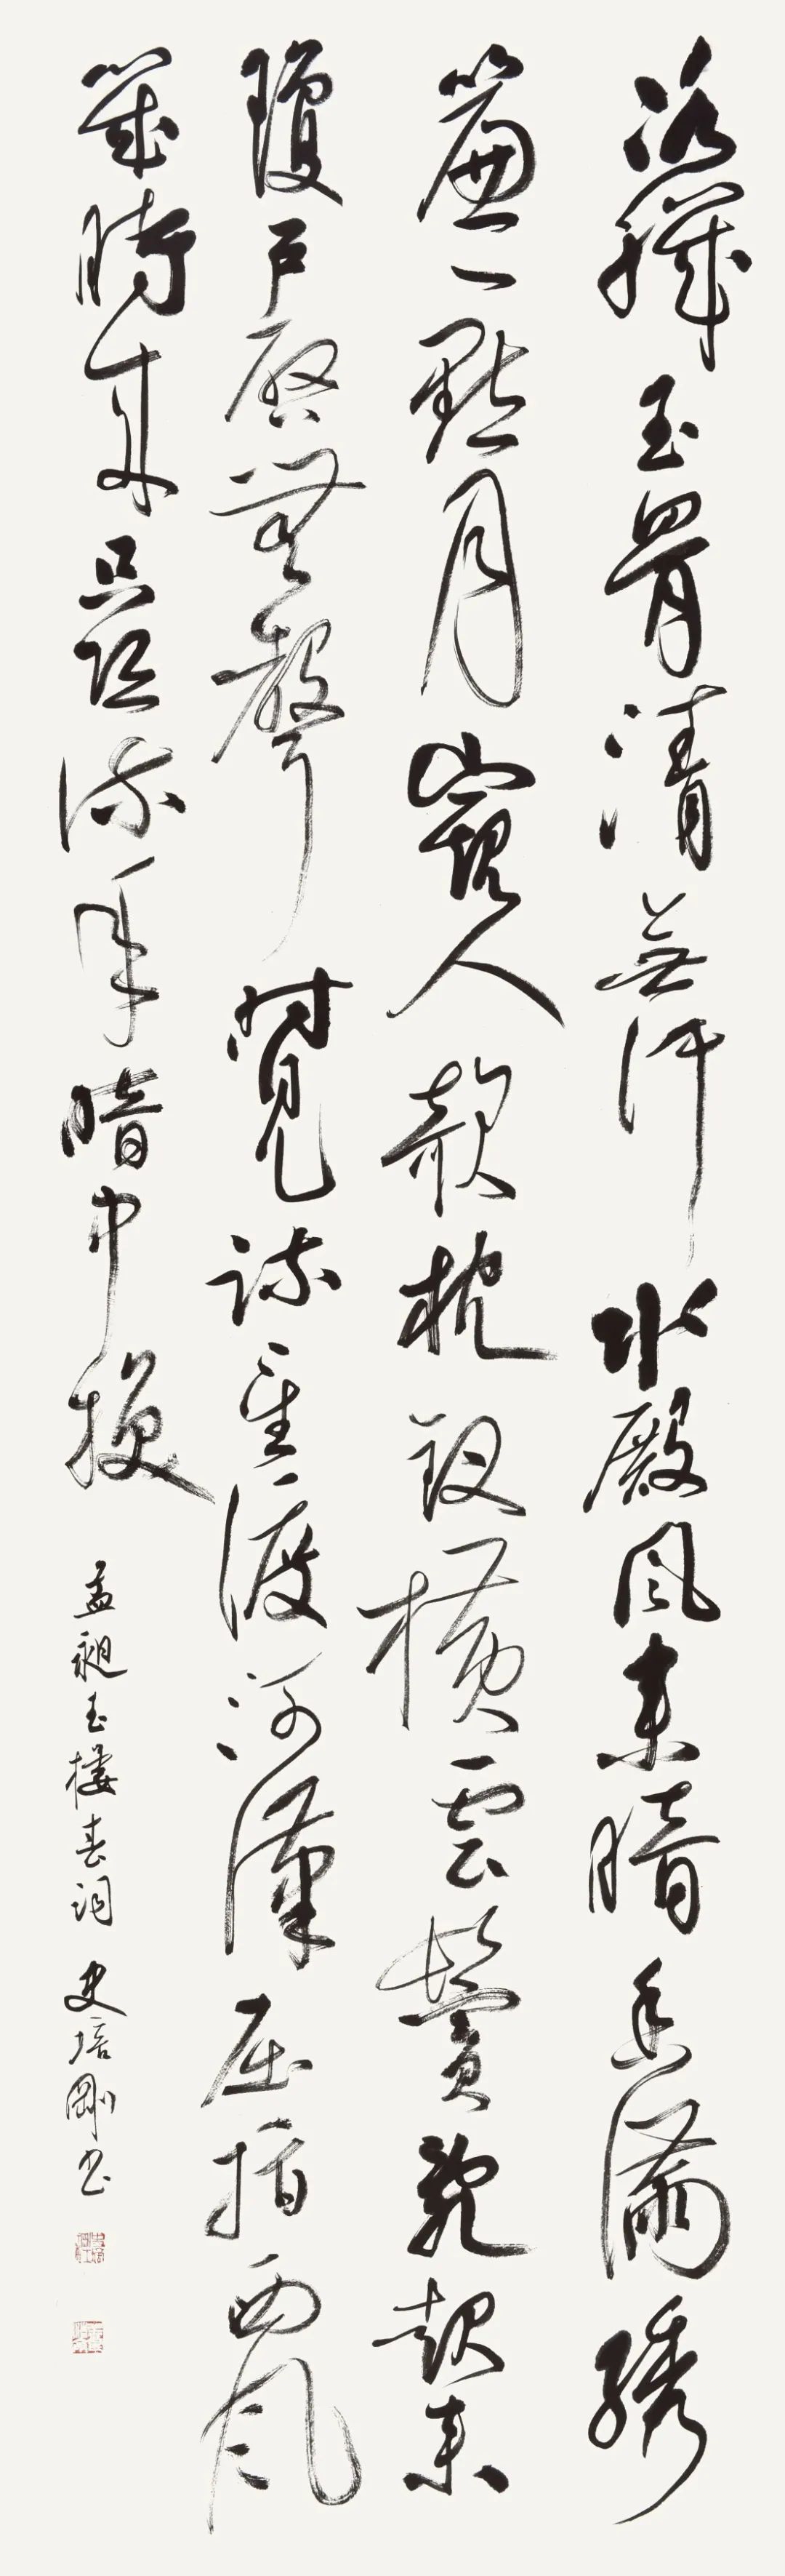 冰肌玉骨清無汗水殿風來暗香滿繡
簾一點月窺人欹枕釵橫雲鬢亂起來
瓊戶啓無聲時見疎星渡河漢屈指西風
幾時來只恐流年暗中換
孟昶玉樓春詞 史培剛書